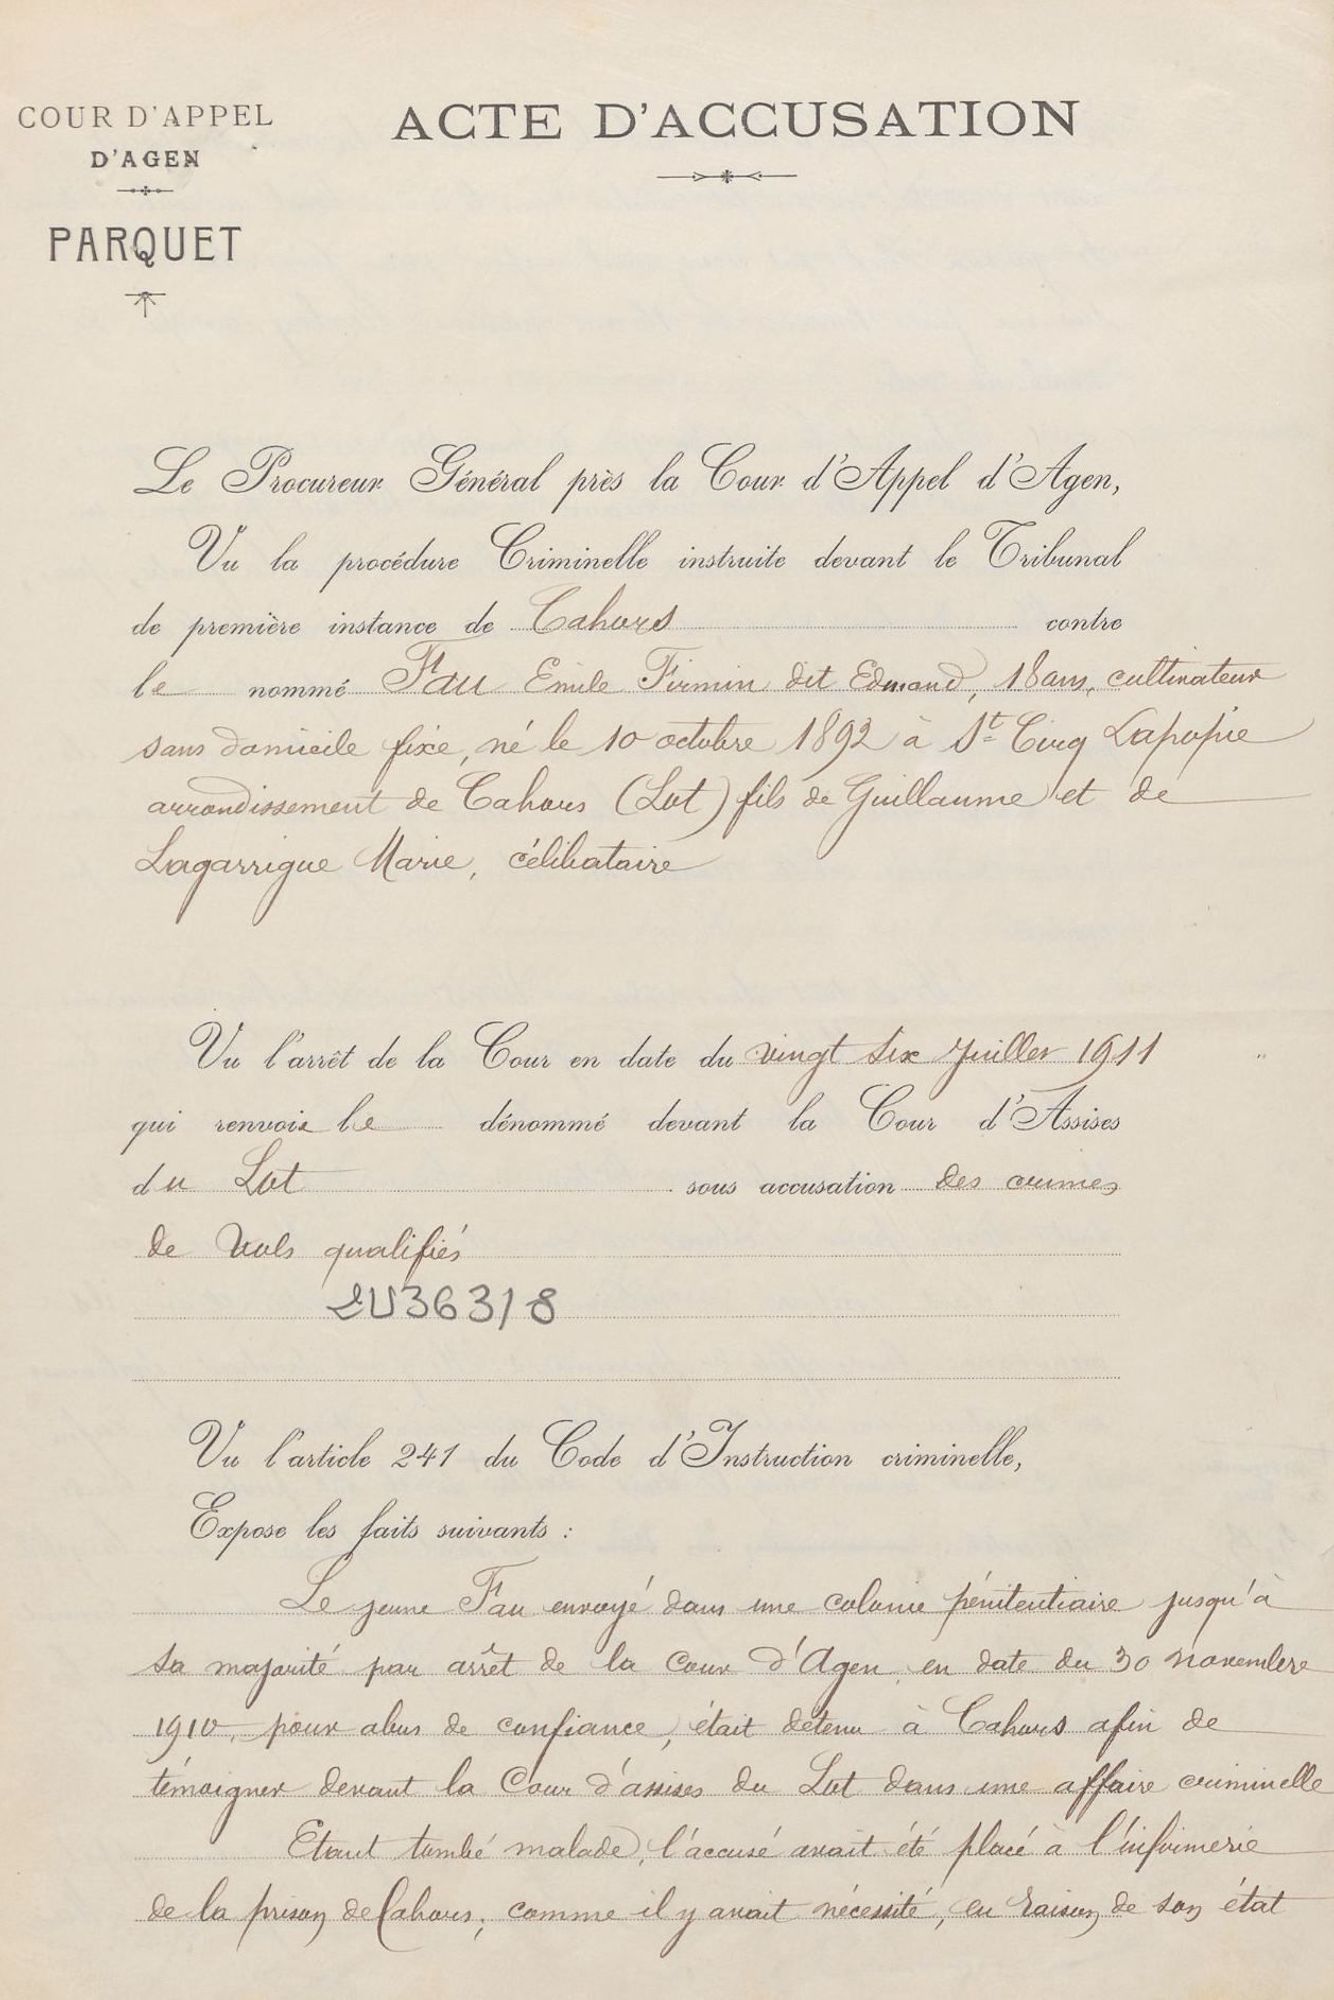 COUR D'APPEL
D'AGEN
PARQUET
ACTE D'ACCUSATION
Le Procureur Général près la Cour d'Appel d'Agen,
Vu la procédure Criminelle instruite devant le Tribunal
de première instance de Cahors contre
le nommé Fau Emile Firmin dit Edmond, 18 ans, cultivateur
sans domicile fixe, né le 10 octobre 1892 à St Cirq Lapopie
arrondissement de Cahors (Lot) fils de Guillaume et de
Lagarrigue Marie, célibataire
Vu l'arrêt de la Cour en date du vingt six Juillet 1911
qui renvoie le dénommé devant la Cour d'Assises
du Lot sous accusation des crimes
de Vols qualifiés
2U363/8
Vu l'article 241 du Code d'Instruction criminelle,
Expose les faits suivants :
Le jeune Fau envoyé dans une colonie pénitentiaire jusqu'à
sa majorité par arrêt de la Cour d'Agen, en date du 30 novembre
1910, pour abus de confiance, était détenu à Cahors afin de
témoigner devant la Cour d'assises du Lot dans une affaire criminelle
Etant tombé malade, l'accusé avait été placé à l'infirmerie
de la prison de Cahors; comme il y avait nécessité, en raison de son état